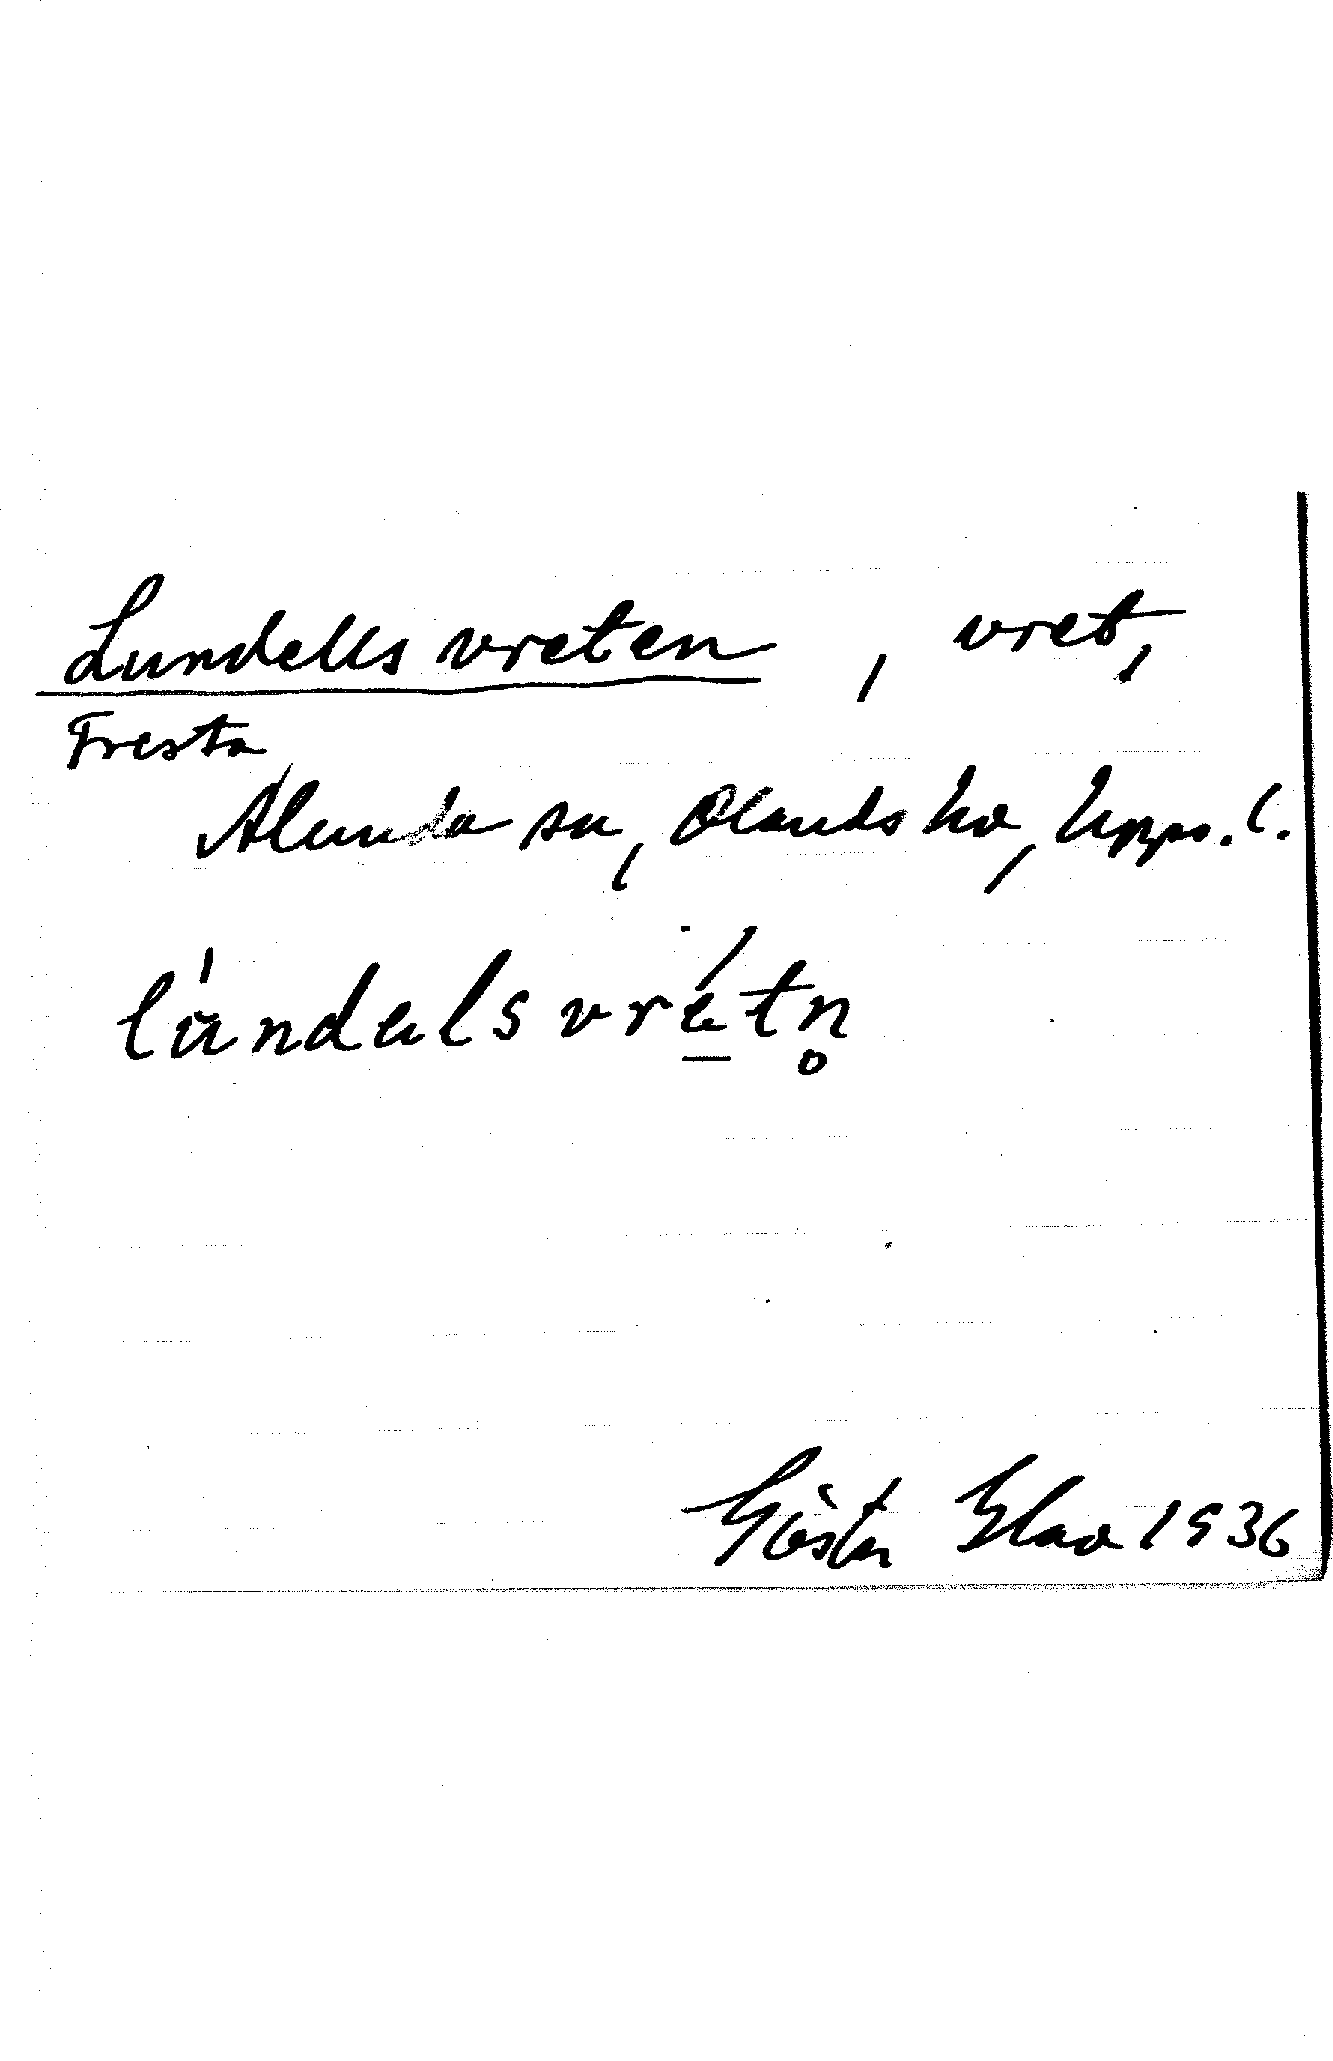 Lundells vreten, vret,
Fresta
Alunda sn, Olands hd, Upps. l.
lándalsvrétn̥
Gösta 1936